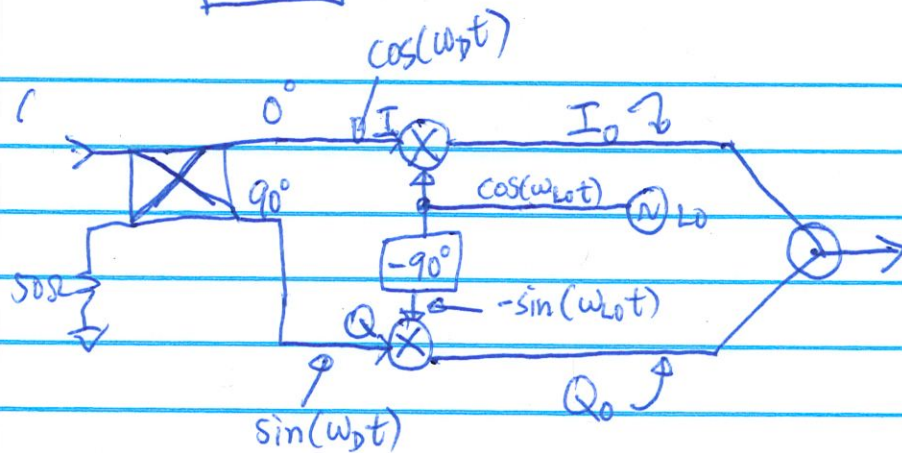 cos(ω_D t)
0°
I
I_0
90°
cos(ω_LO t)
LO
-90°
50Ω
-sin(ω_LO t)
Q
Q_0
sin(ω_D t)